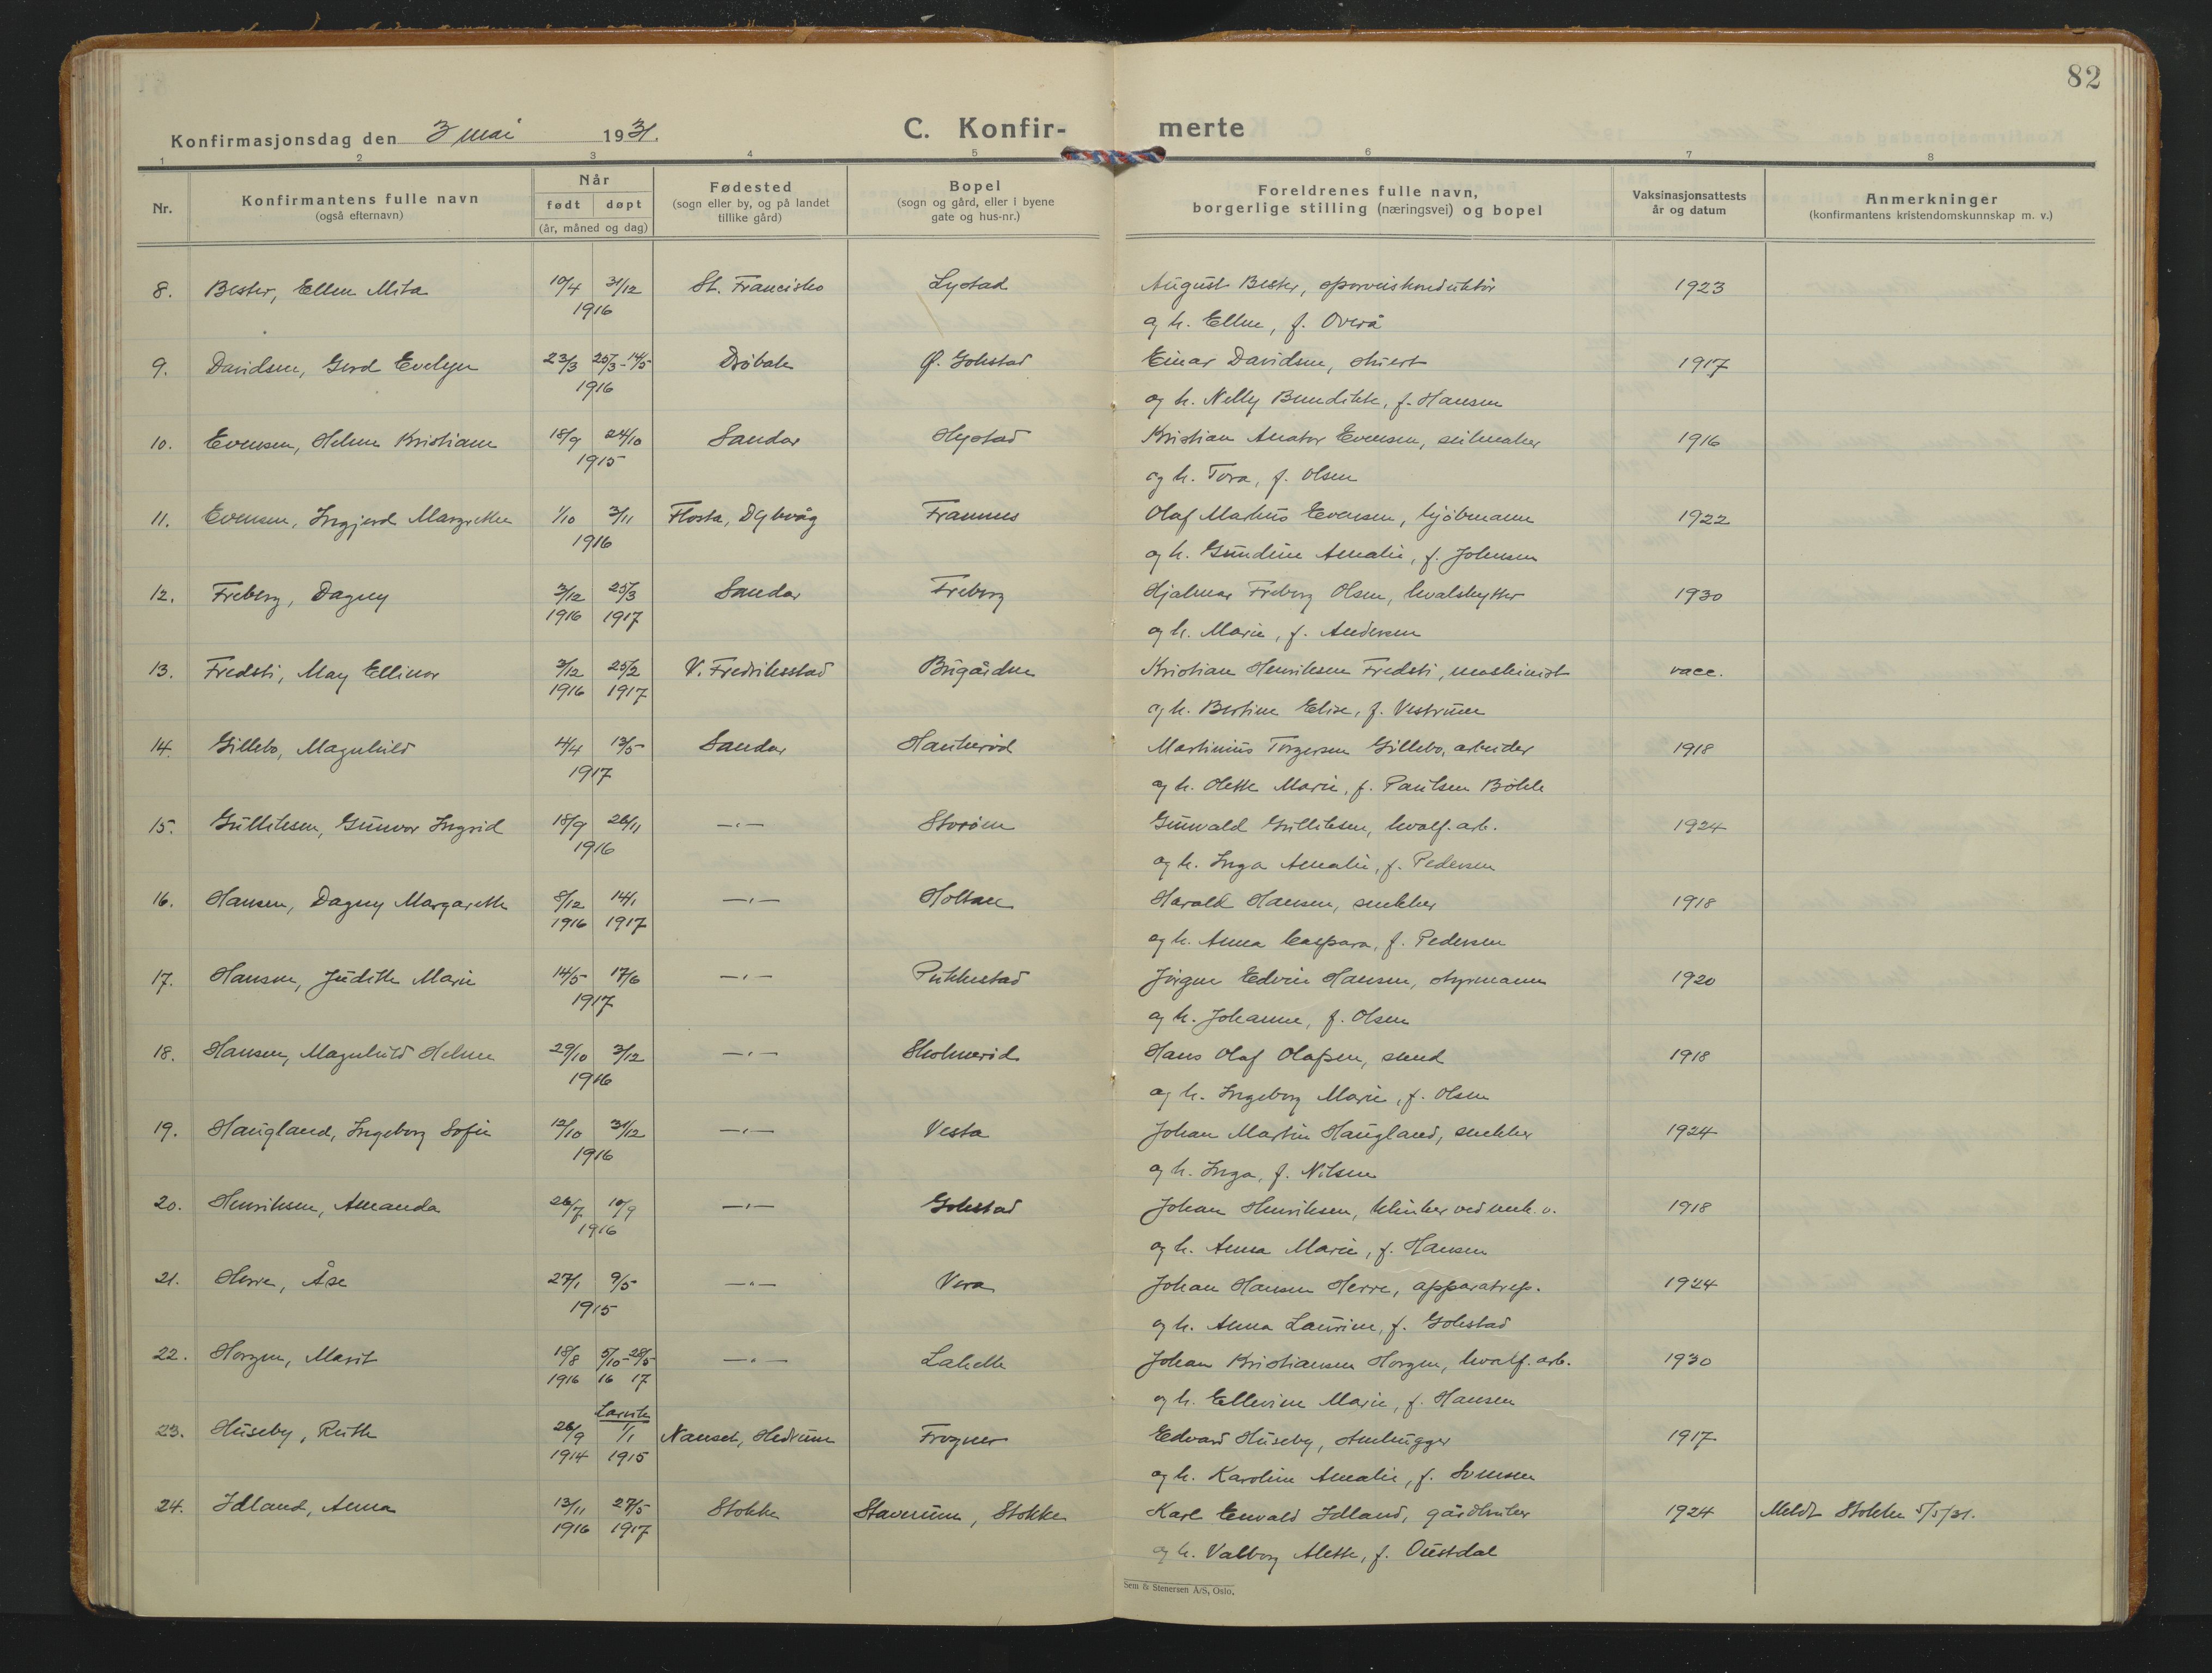 82
Konfirmasjonsdag den 3 mai 1931.
C. Konfir- merte
1 2 3 4 5 6 7 8
Nr.
Konfirmantens fulle navn
(også efternavn)
Når
født døpt
(år, måned og dag)
Fødested
(sogn eller by, og på landet
tillike gård)
Bopel
(sogn og gård, eller i byene
gate og hus-nr.)
Foreldrenes fulle navn,
borgerlige stilling (næringsvei) og bopel
Vaksinasjonsattests
år og datum
Anmerkninger
(konfirmantens kristendomskunnskap m. v.)
8. Bester, Ellen Mita 10/4 31/12 St. Francisko Lystad August Bester, sporveiskonduktör 1923
1916 og h. Ellen, f. Overå
9. Davidsen, Gerd Evelyn 23/3 25/3-14/5 Dröbak Ø. Gokstad Einar Davidsen, stuert 1917
1916 og h. Nelly Bendikke, f. Hansen
10. Evensen, Helene Kristiane 18/9 24/10 Sandar Hystad Kristian Anator Evensen, seilmaker 1916
1915 og h. Tora, f. Olsen
11. Evensen, Ingjerd Margrethe 1/10 3/11 Flosta, Dybvåg Framnes Olaf Markus Evensen, kjöbmann 1922
1916 og h. Gundine Amalie, f. Johnsen
12. Freberg, Dagny 3/12 25/3 Sandar Freberg Hjalmar Freberg Olsen, hvalskytter 1930
1916 1917 og h. Marie, f. Andersen
13. Fredsti, May Ellinor 3/12 25/2 V. Fredriksstad Bugården Kristian Henriksen Fredsti, maskinist vacc.
1916 1917 og h. Bertine Elise, f. Vestrum
14. Gillebo, Magnhild 4/4 13/5 Sandar Haukerød Martinius Torgersen Gillebo, arbeider 1918
1917 og h. Olette Marie, f. Paulsen Bökle
15. Gulliksen, Gunvor Ingrid 18/9 26/11 —"— Storöen Gunvald Gulliksen, hvalf. arb. 1924
1916 og h. Inga Amalie, f. Pedersen
16. Hansen, Dagny Margarethe 8/12 14/1 —"— Holtan Harald Hansen, snekker 1918
1916 1917 og h. Anna Caspara, f. Pedersen
17. Hansen, Judith Marie 14/5 17/6 —"— Pukkestad Jörgen Edvin Hansen, styrmann 1920
1917 og h. Johanne, f. Olsen
18. Hansen, Magnhild Helene 29/10 3/12 —"— Skolmerød Hans Olaf Olafsen, smed 1918
1916 og h. Ingeborg Marie, f. Olsen
19. Haugland, Ingeborg Sofie 12/10 31/12 —"— Vesta Johan Martin Haugland, snekker 1924
1916 og h. Inga, f. Nilsen
20. Henriksen, Amanda 26/7 10/9 —"— Gokstad Johan Henriksen, klinker ved mek. v. 1918
1916 og h. Anna Marie, f. Hansen
21. Herre, Åse 27/1 9/5 —"— Vera Johan Hansen Herre, apparatrep. 1924
1915 og h. Anna Laurine, f. Gokstad
22. Horgen, Marit 18/8 5/10-28/5 —"— Lahelle Johan Kristiansen Horgen, hvalf. arb. 1930
1916 16 17 og h. Ellevine Marie, f. Hansen
Larvik
23. Huseby, Ruth 26/9 1/1 Nanset, Hedrum Frogner Edvard Huseby, stenhugger 1917
1914 1915 og h. Karoline Amalie, f. Svensen
24. Idland, Anna 13/11 27/5 Stokke Staverum, Stokke Karl Envald Idland, gårdbruker 1924 Meldt Stokke 5/5/31.
1916 1917 og h. Valborg Alette, f. Oustdal
Sem & Stenersen A/S, Oslo.